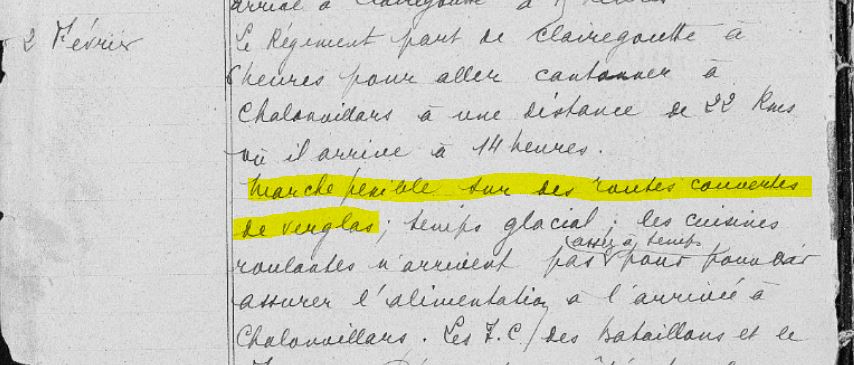 arrive à Clairegoutte à
2 Février
Le Régiment part de Clairegoutte à
6 heures pour aller cantonner à
Chalonvillars à une distance de 22 Kms
où il arrive à 14 heures.
Marche pénible sur des routes couvertes
de verglas; temps glacial; les cuisines
(assez à temps
roulantes n'arrivent pas pour pouvoir
assurer l'alimentation à l'arrivée à
Chalonvillars. Les T.C/ des Bataillons et le